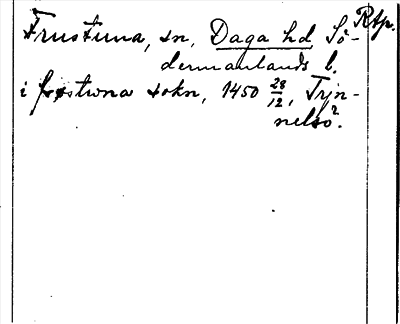 Frustuna, sn, Daga hd, Sö- Rtp.
dermanlands l.
i frøstwna sokn, 1450 28/12, Trýn-
nelsö?.